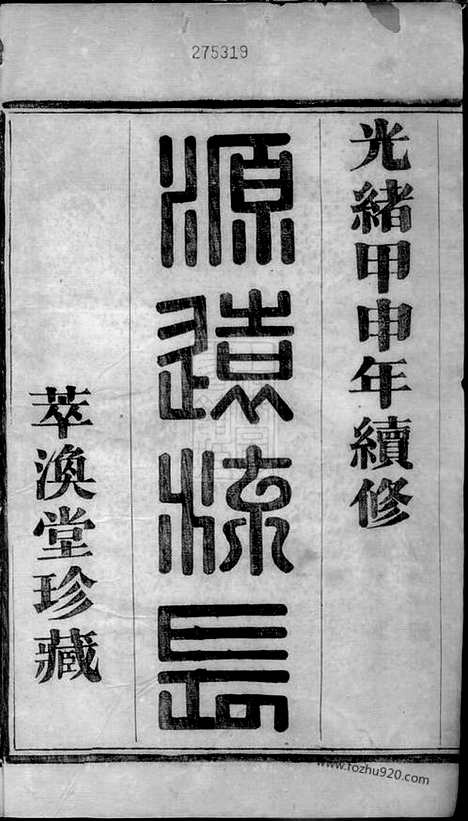 275319
光緒甲申年續修
源遠流長
萃渙堂珍藏
www.fozhu920.com